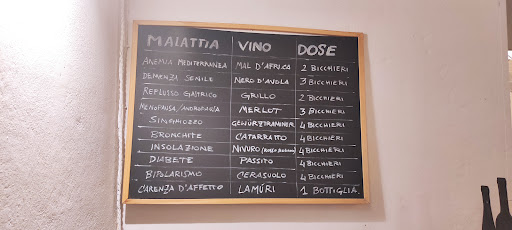 MALATTIA VINO DOSE
ANEMIA MEDITERRANEA MAL D'AFRICA 2 BICCHIERI
DEMENZA SENILE NERO D'AVOLA 3 BICCHIERI
REFLUSSO GASTRICO GRILLO 2 BICCHIERI
MENOPAUSA/ANDROPAUSA MERLOT 3 BICCHIERI
SINGHIOZZO GEWÜRZTRAMINER 4 BICCHIERI
BRONCHITE CATARRATTO 4 BICCHIERI
INSOLAZIONE NIVURO 4 BICCHIERI
DIABETE PASSITO 4 BICCHIERI
BIPOLARISMO CERASUOLO 4 BICCHIERI
CARENZA D'AFFETTO LAMÚRI 1 BOTTIGLIA